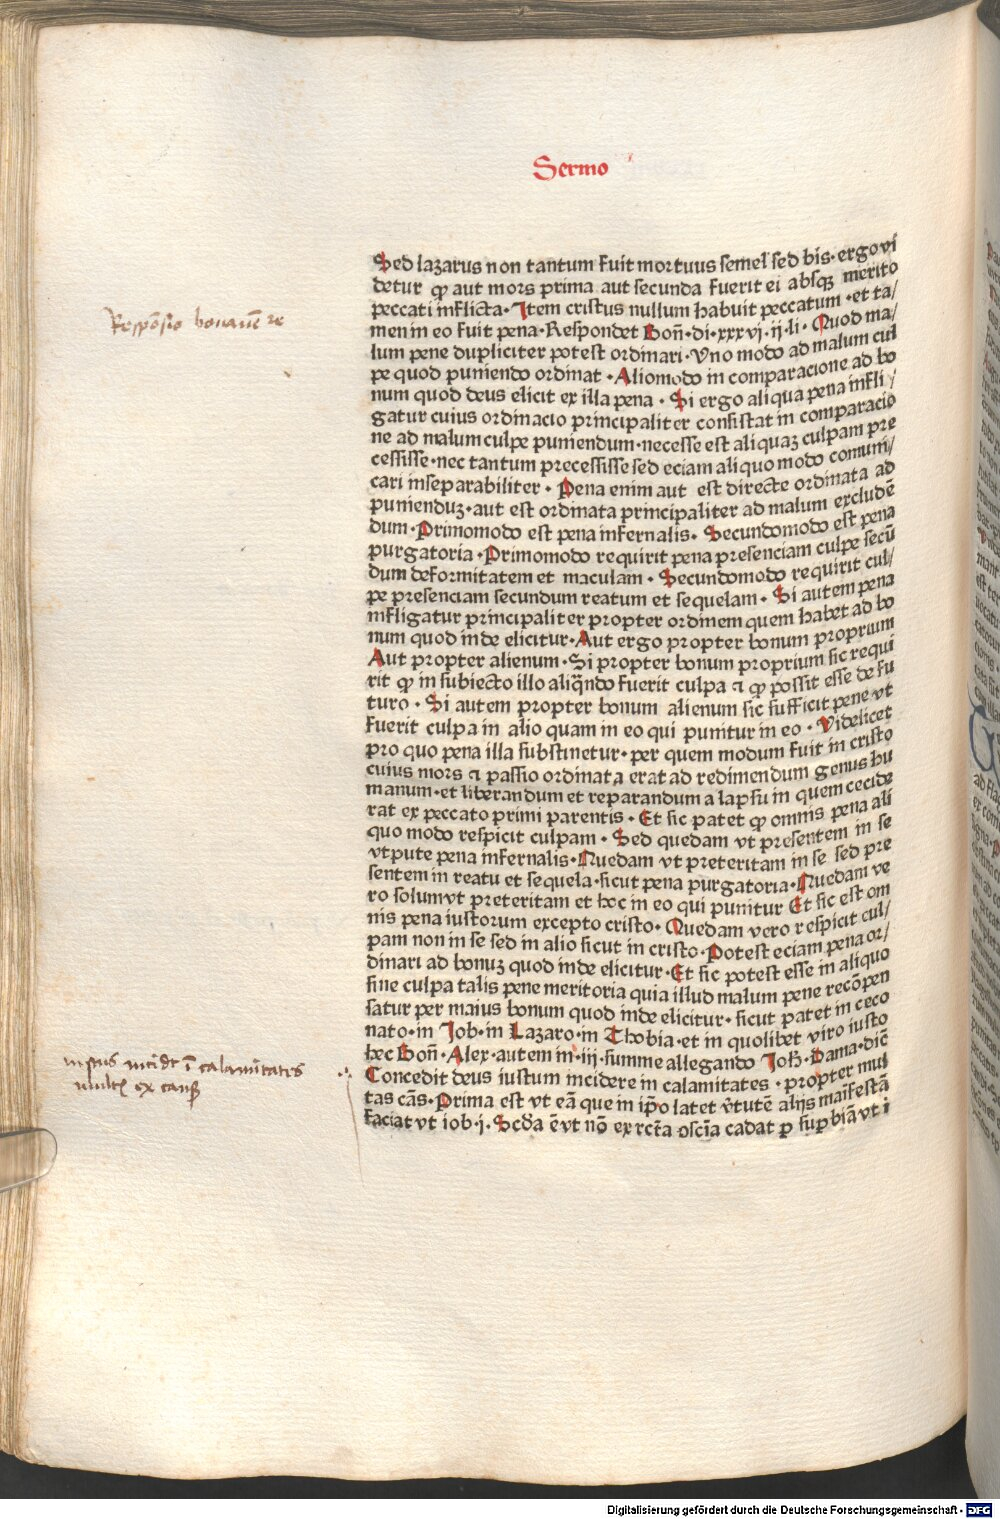 Sermo
Sed lazarus non tantum fuit mortuus semel sed bis· ergo vi
detur ꝙ aut mors prima aut secunda fuerit ei absqꝫ merito
peccati inflicta· Item cristus nullum habuit peccatum· et ta/
men in eo fuit pena· Respondet Boñ· di· xxxvj· ij· li· Quod ma/
lum pene dupliciter potest ordinari· Vno modo ad malum cul
pe quod puniendo ordinat· Aliomodo in comparacione ad bo
num quod deus elicit ex illa pena· Si ergo aliqua pena infli/
gatur cuius ordinacio principaliter consistat in comparacio
ne ad malum culpe puniendum· necesse est aliquaꝫ culpam pre
cessisse· nec tantum precessisse sed eciam aliquo modo comuni/
cari inseparabiliter· Pena enim aut est directe ordinata ad
punienduꝫ· aut est ordinata principaliter ad malum excludē
dum· Primomodo est pena infernalis· Secundomodo est pena
purgatoria· Primomodo requirit pena presenciam culpe secū
dum deformitatem et maculam· Secundomodo requirit cul/
pe presenciam secundum reatum et sequelam· Si autem pena
infligatur principaliter propter ordinem quem habet ad bo
num quod inde elicitur· Aut ergo propter bonum proprium
Aut propter alienum· Si propter bonum proprium sic requi
rit ꝙ in subiecto illo aliqñdo fuerit culpa ⁊ ꝙ possit esse de fu
turo· Si autem propter bonum alienum sic sufficit pene vt
fuerit culpa in alio quam in eo qui punitur in eo· Videlicet
pro quo pena illa substinetur· per quem modum fuit in cristo
cuius mors ⁊ passio ordinata erat ad redimendum genus hu
manum· et liberandum et reparandum a lapsu in quem cecide
rat ex peccato primi parentis· Et sic patet ꝙ omnis pena ali
quo modo respicit culpam· Sed quedam vt presentem in se
vtpute pena infernalis· Quedam vt preteritam in se sed pre
sentem in reatu et sequela· sicut pena purgatoria· Quedam ve
ro solum vt preteritam et hec in eo qui punitur Et sic est om
nis pena iustorum excepto cristo· Quedam vero respicit cul/
pam non in se sed in alio sicut in cristo· Potest eciam pena or/
dinari ad bonuꝫ quod inde elicitur· Et sic potest esse in aliquo
sine culpa talis pene meritoria quia illud malum pene recōpen
satur per maius bonum quod inde elicitur· sicut patet in ceco
nato· in Job· in Lazaro· in Thobia· et in quolibet viro iusto
hec Boñ· Alex· autem in· iij· summe allegando Joħ· Dama· diē
Concedit deus iustum incidere in calamitates· propter mul
tas cās· Prima est vt eā que in ip̄o latet v̄tutē alijs maīfestā
faciat vt iob· j· Scd̄a ē vt nō ex rcta ꝯscīa cadat ꝑ suꝑbiā vt i
Respōsio bonauēre
iustus incidt ī calamitates
multꝭ ex causꝭ
Digitalisierung gefördert durch die Deutsche Forschungsgemeinschaft - DFG